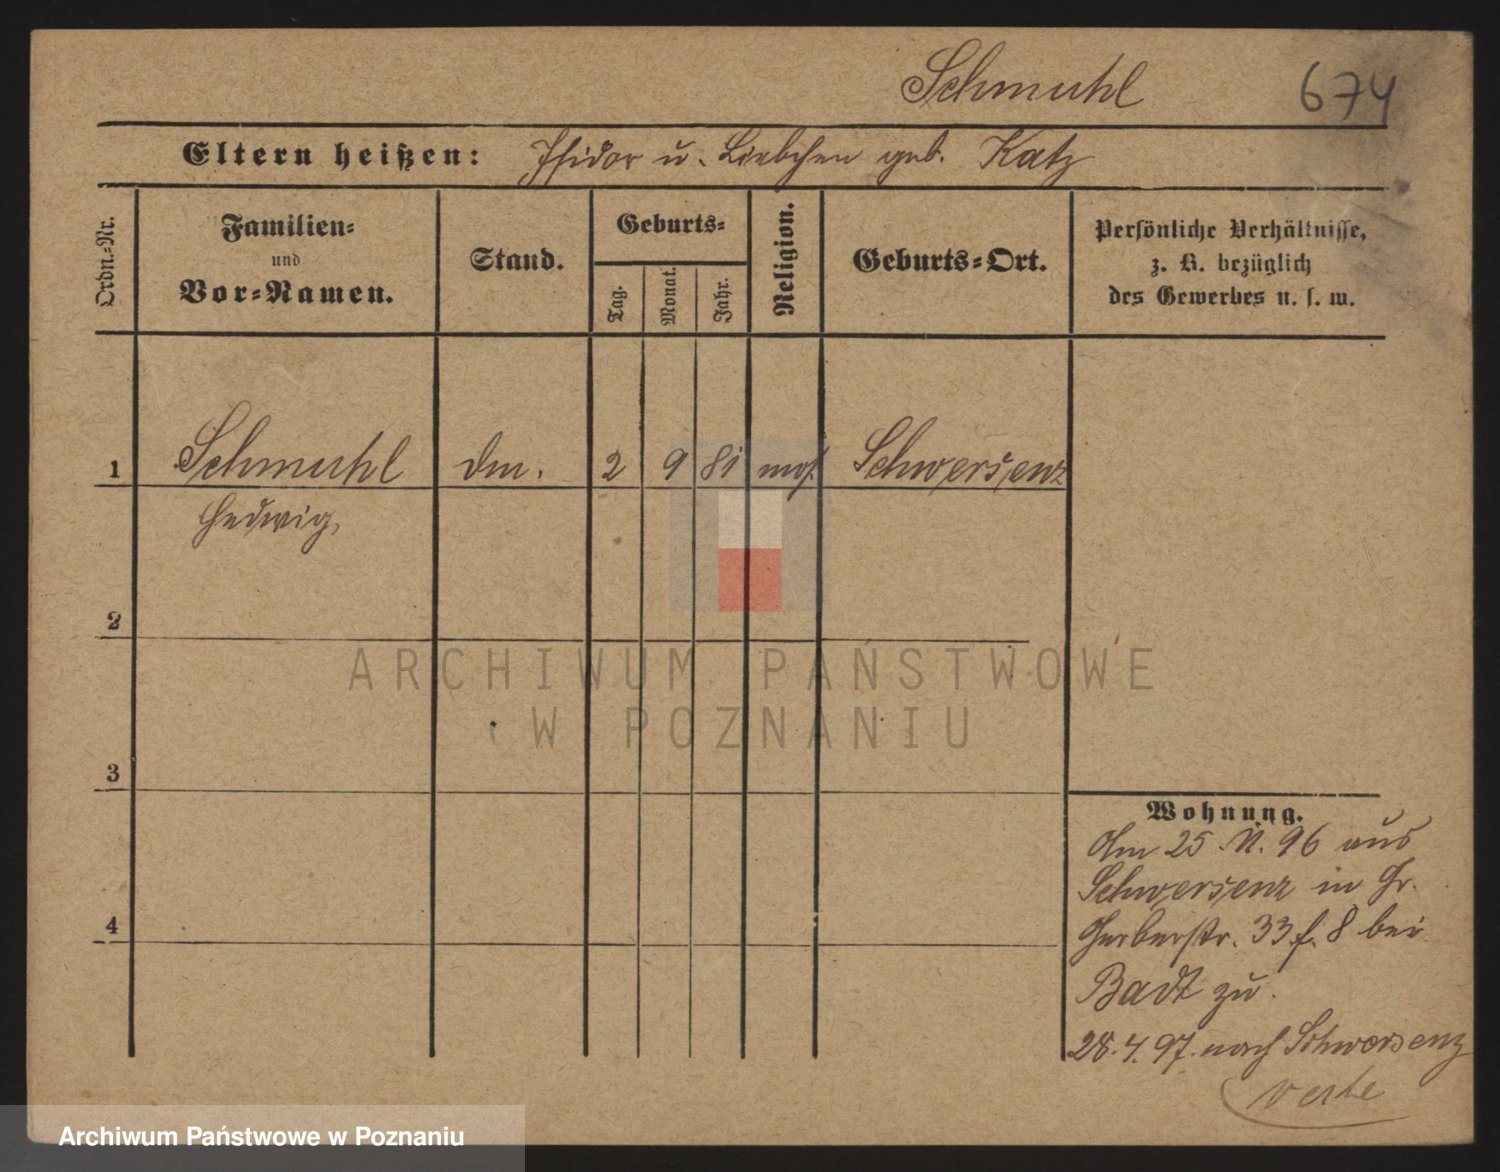 Schmuhl 674
Eltern heißen: Isidor u. Liebchen geb. Katz
Ordn.-Nr.
Familien-
und
Vor-Namen.
Stand.
Geburts-
Tag.
Monat.
Jahr.
Religion.
Geburts-Ort.
Persönliche Verhältnisse,
z. B. bezüglich
des Gewerbes u. s. w.
1 Schmuhl 2 9 81 mos. Schwersenz
Hedwig
2
3
4
Wohnung.
Am 25. 96 aus
Schwersenz in Gr.
Gerberstr. 33 f. 8 bei
Badt zu.
28. 4. 97. nach Schwersenz
verte
ARCHIWUM PAŃSTWOWE
W POZNANIU
Archiwum Państwowe w Poznaniu